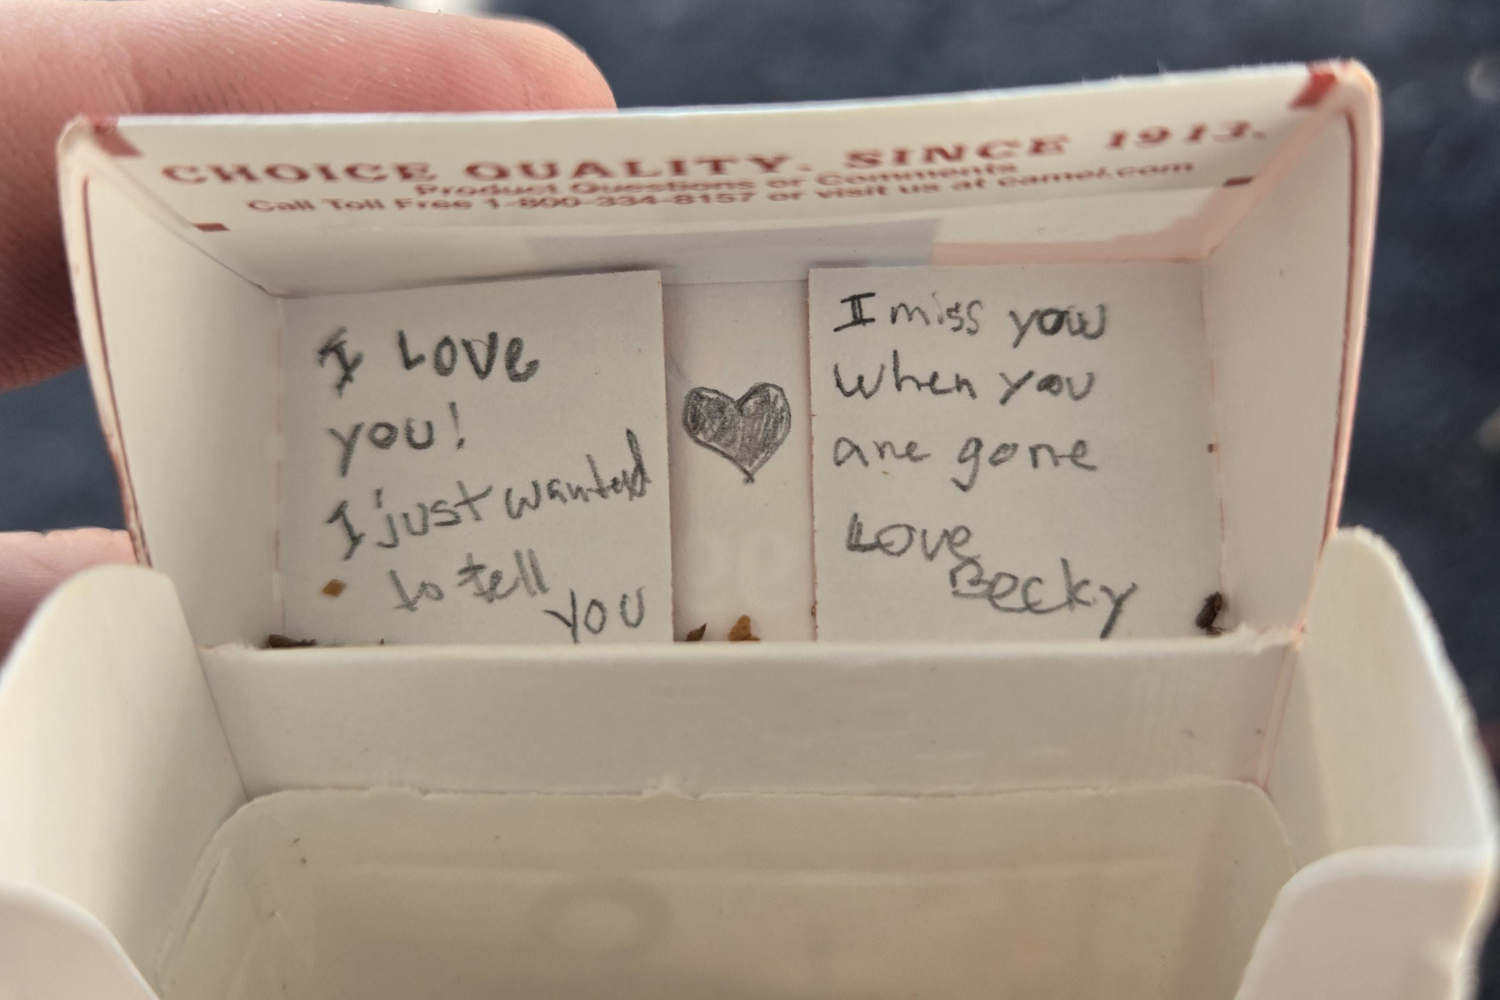 CHOICE QUALITY. SINCE 1913.
Product Questions or Comments
Call Toll Free 1-800-334-8157 or visit us at camel.com
I Love
you!
I just wanted
to tell
you
I miss you
when you
are gone
Love,
Becky